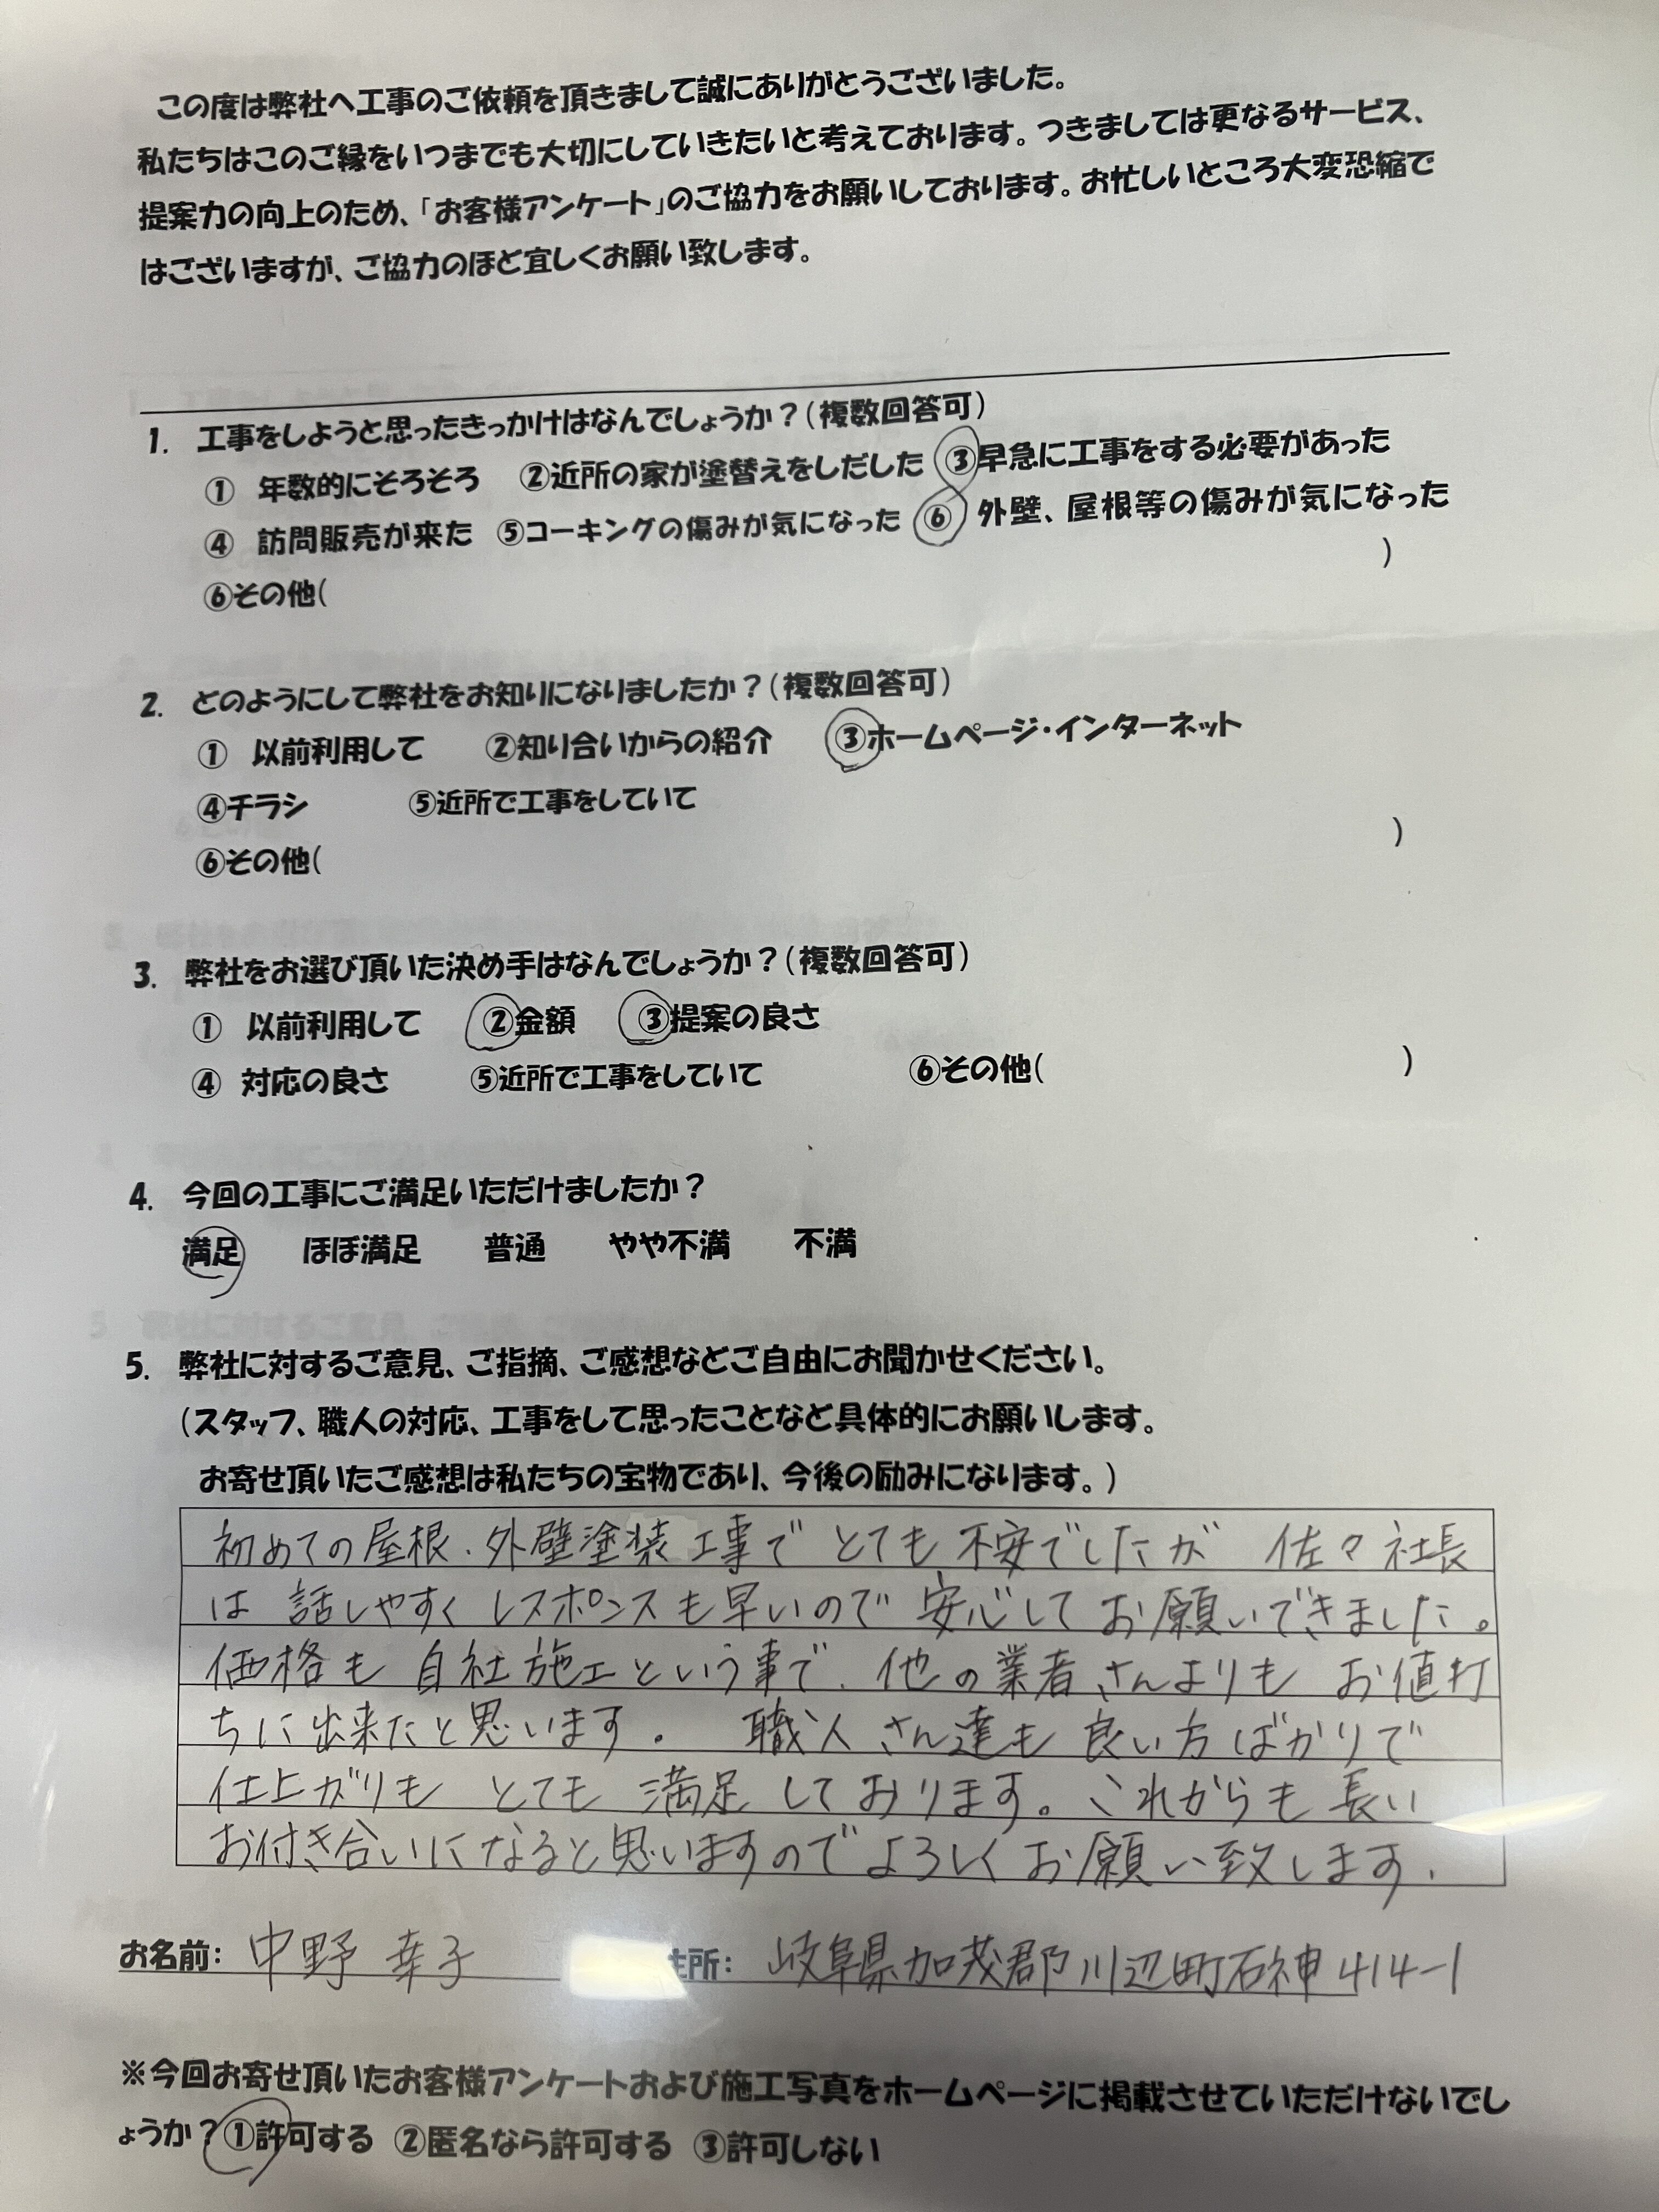 この度は弊社へ工事のご依頼を頂きまして誠にありがとうございました。
私たちはこのご縁をいつまでも大切にしていきたいと考えております。つきましては更なるサービス、
提案力の向上のため、「お客様アンケート」のご協力をお願いしております。お忙しいところ大変恐縮で
はございますが、ご協力のほど宜しくお願い致します。
1. 工事をしようと思ったきっかけはなんでしょうか？（複数回答可）
① 年数的にそろそろ ②近所の家が塗替えをしだした ③早急に工事をする必要があった
④ 訪問販売が来た ⑤コーキングの傷みが気になった ⑥ 外壁、屋根等の傷みが気になった
⑥その他( )
2. どのようにして弊社をお知りになりましたか？（複数回答可）
① 以前利用して ②知り合いからの紹介 ③ホームページ・インターネット
④チラシ ⑤近所で工事をしていて
⑥その他( )
3. 弊社をお選び頂いた決め手はなんでしょうか？（複数回答可）
① 以前利用して ②金額 ③提案の良さ
④ 対応の良さ ⑤近所で工事をしていて ⑥その他( )
4. 今回の工事にご満足いただけましたか？
満足 ほぼ満足 普通 やや不満 不満
5. 弊社に対するご意見、ご指摘、ご感想などご自由にお聞かせください。
（スタッフ、職人の対応、工事をして思ったことなど具体的にお願いします。
お寄せ頂いたご感想は私たちの宝物であり、今後の励みになります。）
初めての屋根、外壁塗装工事で とても不安でしたが 佐々社長
は 話しやすく レスポンスも早いので 安心して お願いできました。
価格も 自社施工という事で、他の業者さんよりも お値打
ちに出来たと思います。 職人さん達も 良い方ばかりで
仕上がりも とても 満足しております。これからも 長い
お付き合いになると思いますのでよろしくお願い致します。
お名前: 中野 幸子 住所: 岐阜県加茂郡川辺町石神414-1
※今回お寄せ頂いたお客様アンケートおよび施工写真をホームページに掲載させていただけないでし
ょうか？①許可する ②匿名なら許可する ③許可しない